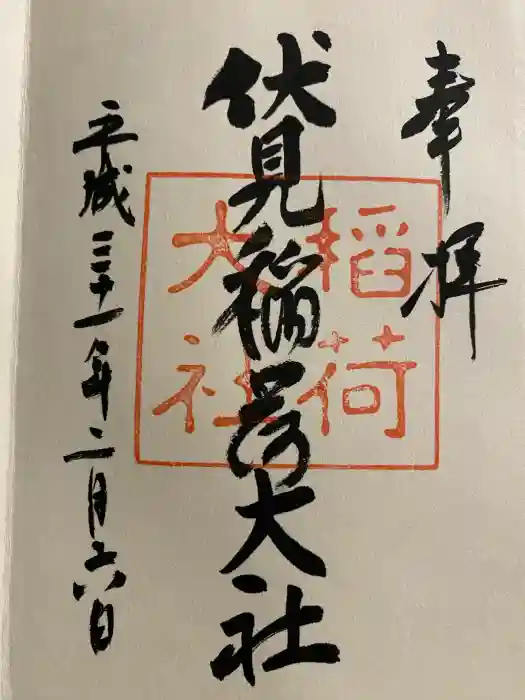 奉拝
伏見稲荷大社
稲荷
大社
平成三十一年二月十六日